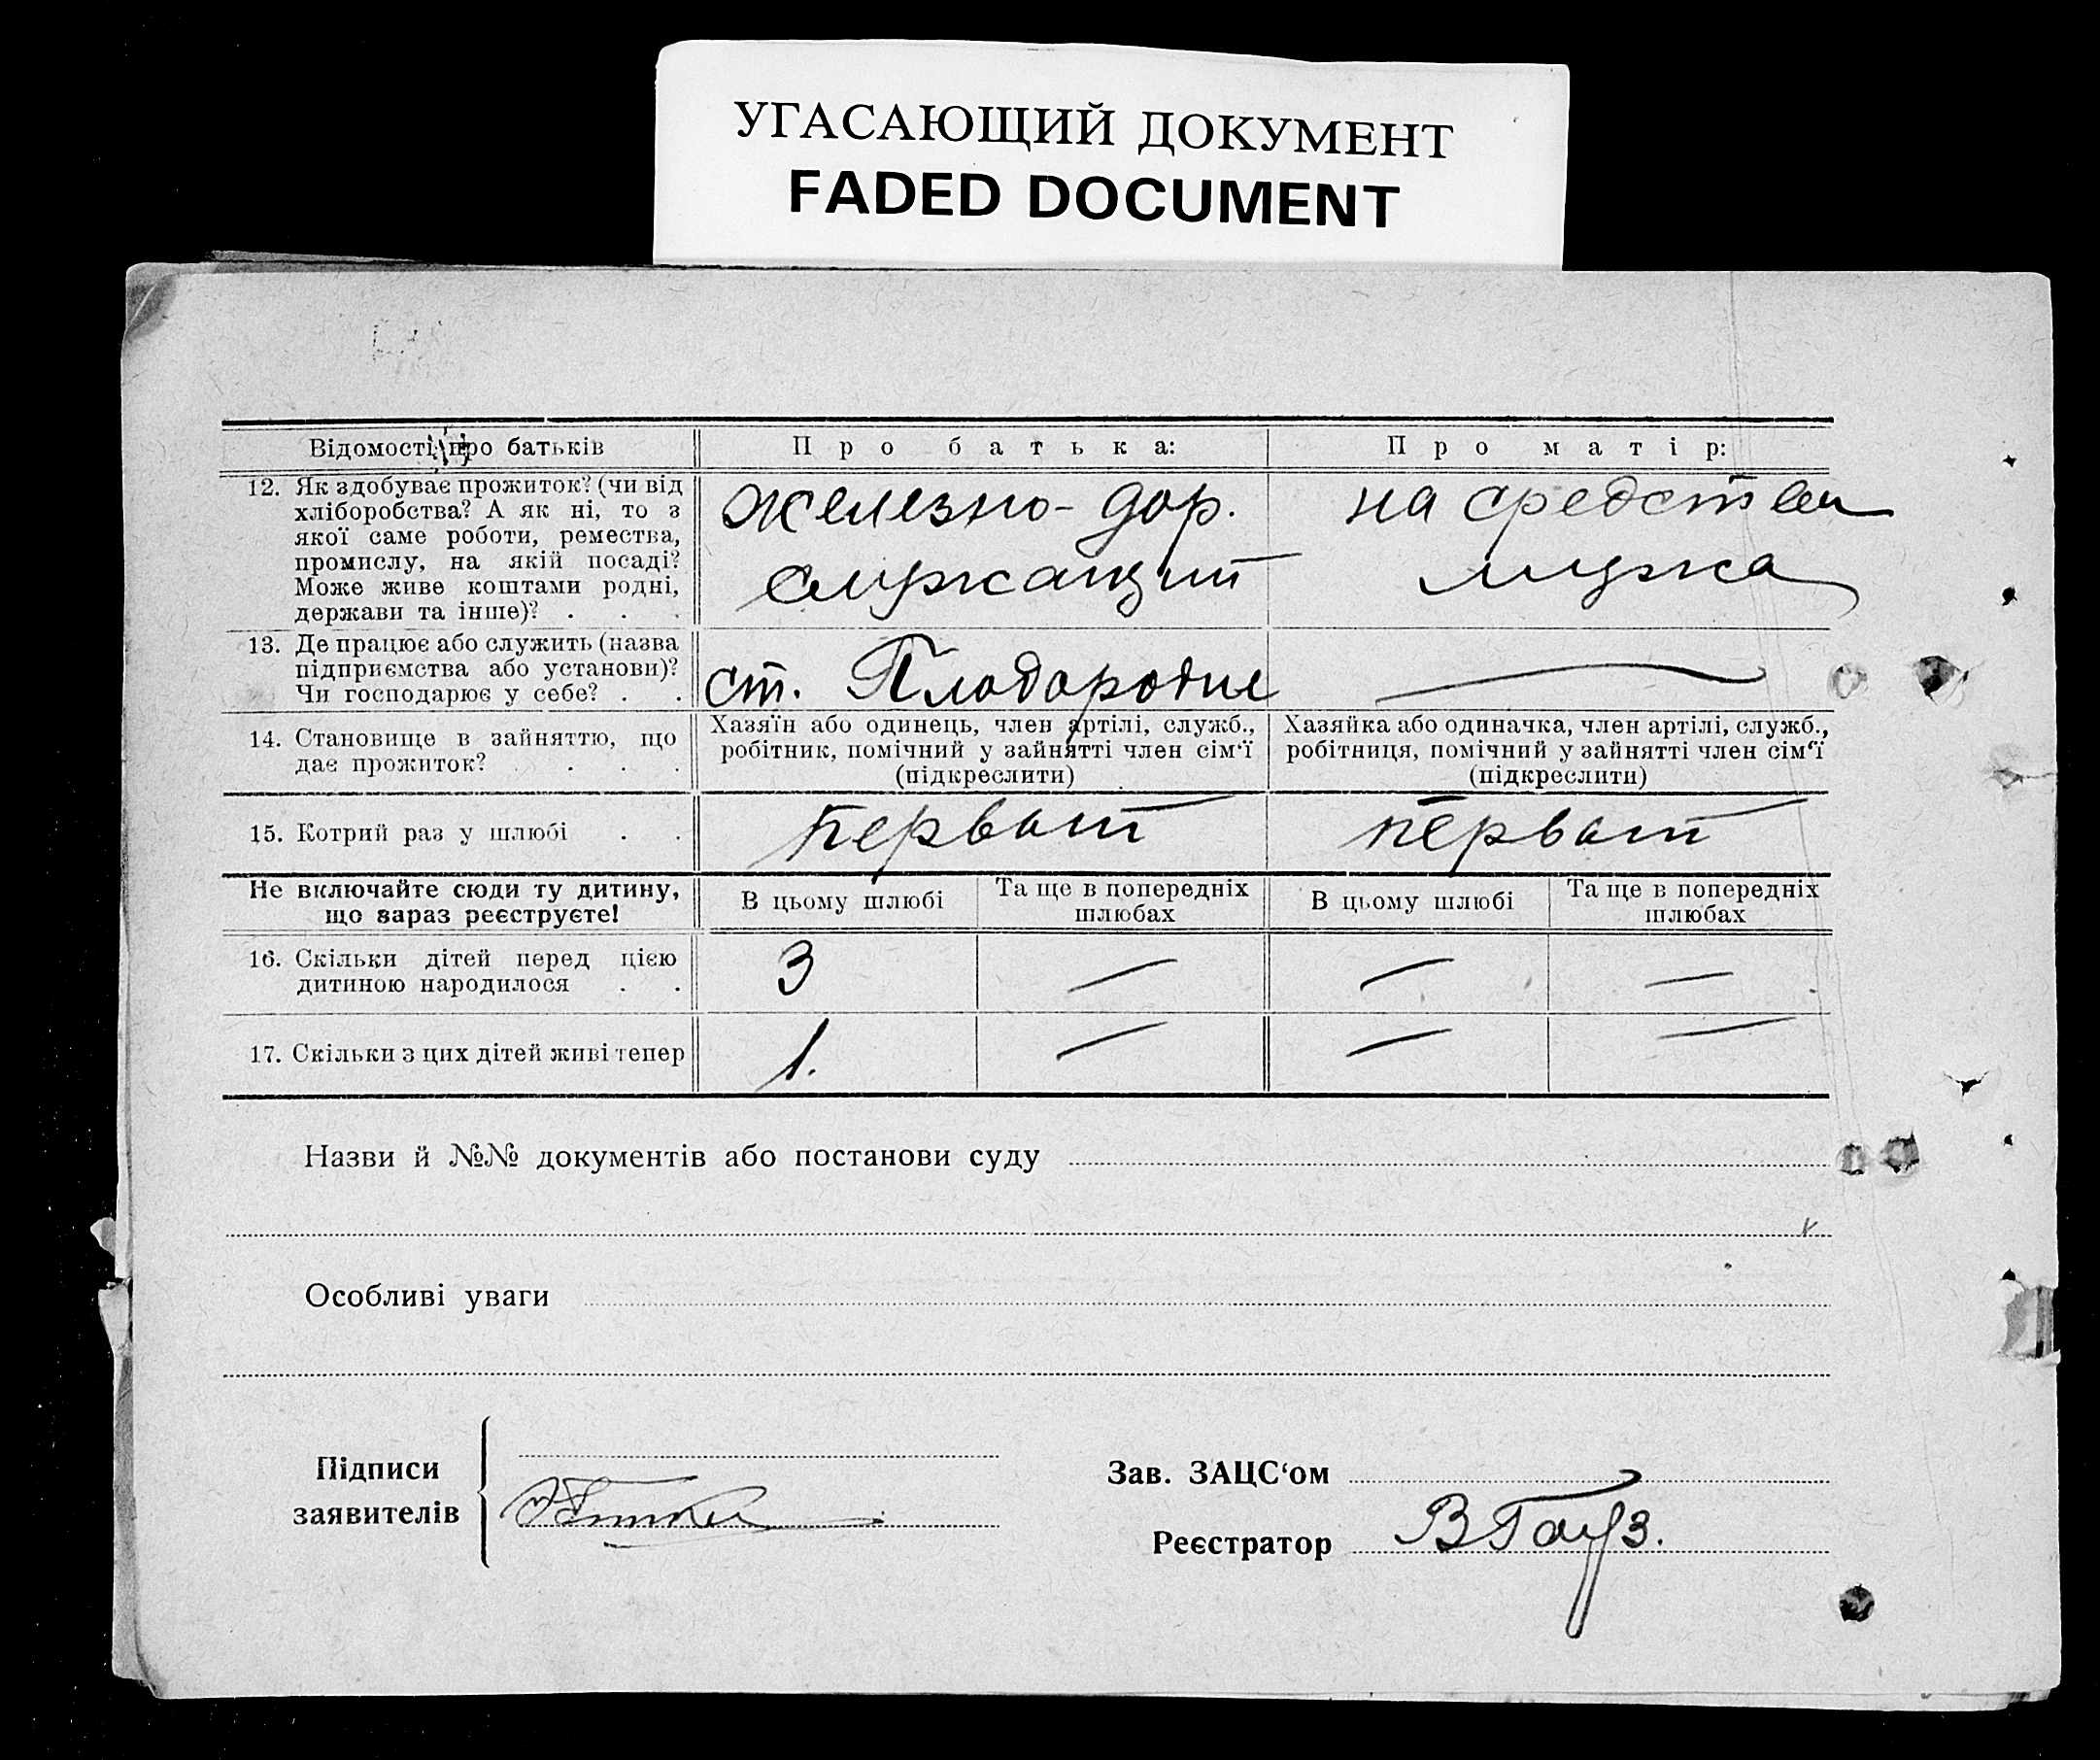 УГАСАЮЩИЙ ДОКУМЕНТ
FADED DOCUMENT
Відомості про батьків
Про батька:
Про матір:
12. Як здобуває прожиток? (чи від
хліборобства? А як ні, то з
якої саме роботи, ремества,
промислу, на якій посаді?
Може живе коштами родні,
держави та інше)? . . .
железно-дор.
служащий
на средствa
мужа
13. Де працює або служить (назва
підприємства або установи)?
Чи господарює у себе? . .
ст. Плодородие
14. Становище в зайняттю, що
дає прожиток? . . .
Хазяїн або одинець, член артілі, служб.,
робітник, помічний у зайнятті член сім‘ї
(підкреслити)
Хазяйка або одиначка, член артілі, служб.,
робітниця, помічний у зайнятті член сім‘ї
(підкреслити)
15. Котрий раз у шлюбі . .
первый
первый
Не включайте сюди ту дитину,
що зараз реєструєте!
В цьому шлюбі
Та ще в попередніх
шлюбах
В цьому шлюбі
Та ще в попередніх
шлюбах
16. Скільки дітей перед цією
дитиною народилося . .
3 — — —
17. Скільки з цих дітей живі тепер
1. — — —
Назви й №№ документів або постанови суду
Особливі уваги
Підписи
заявителів
Зав. ЗАЦС‘ом
Реєстратор
ВГауз.